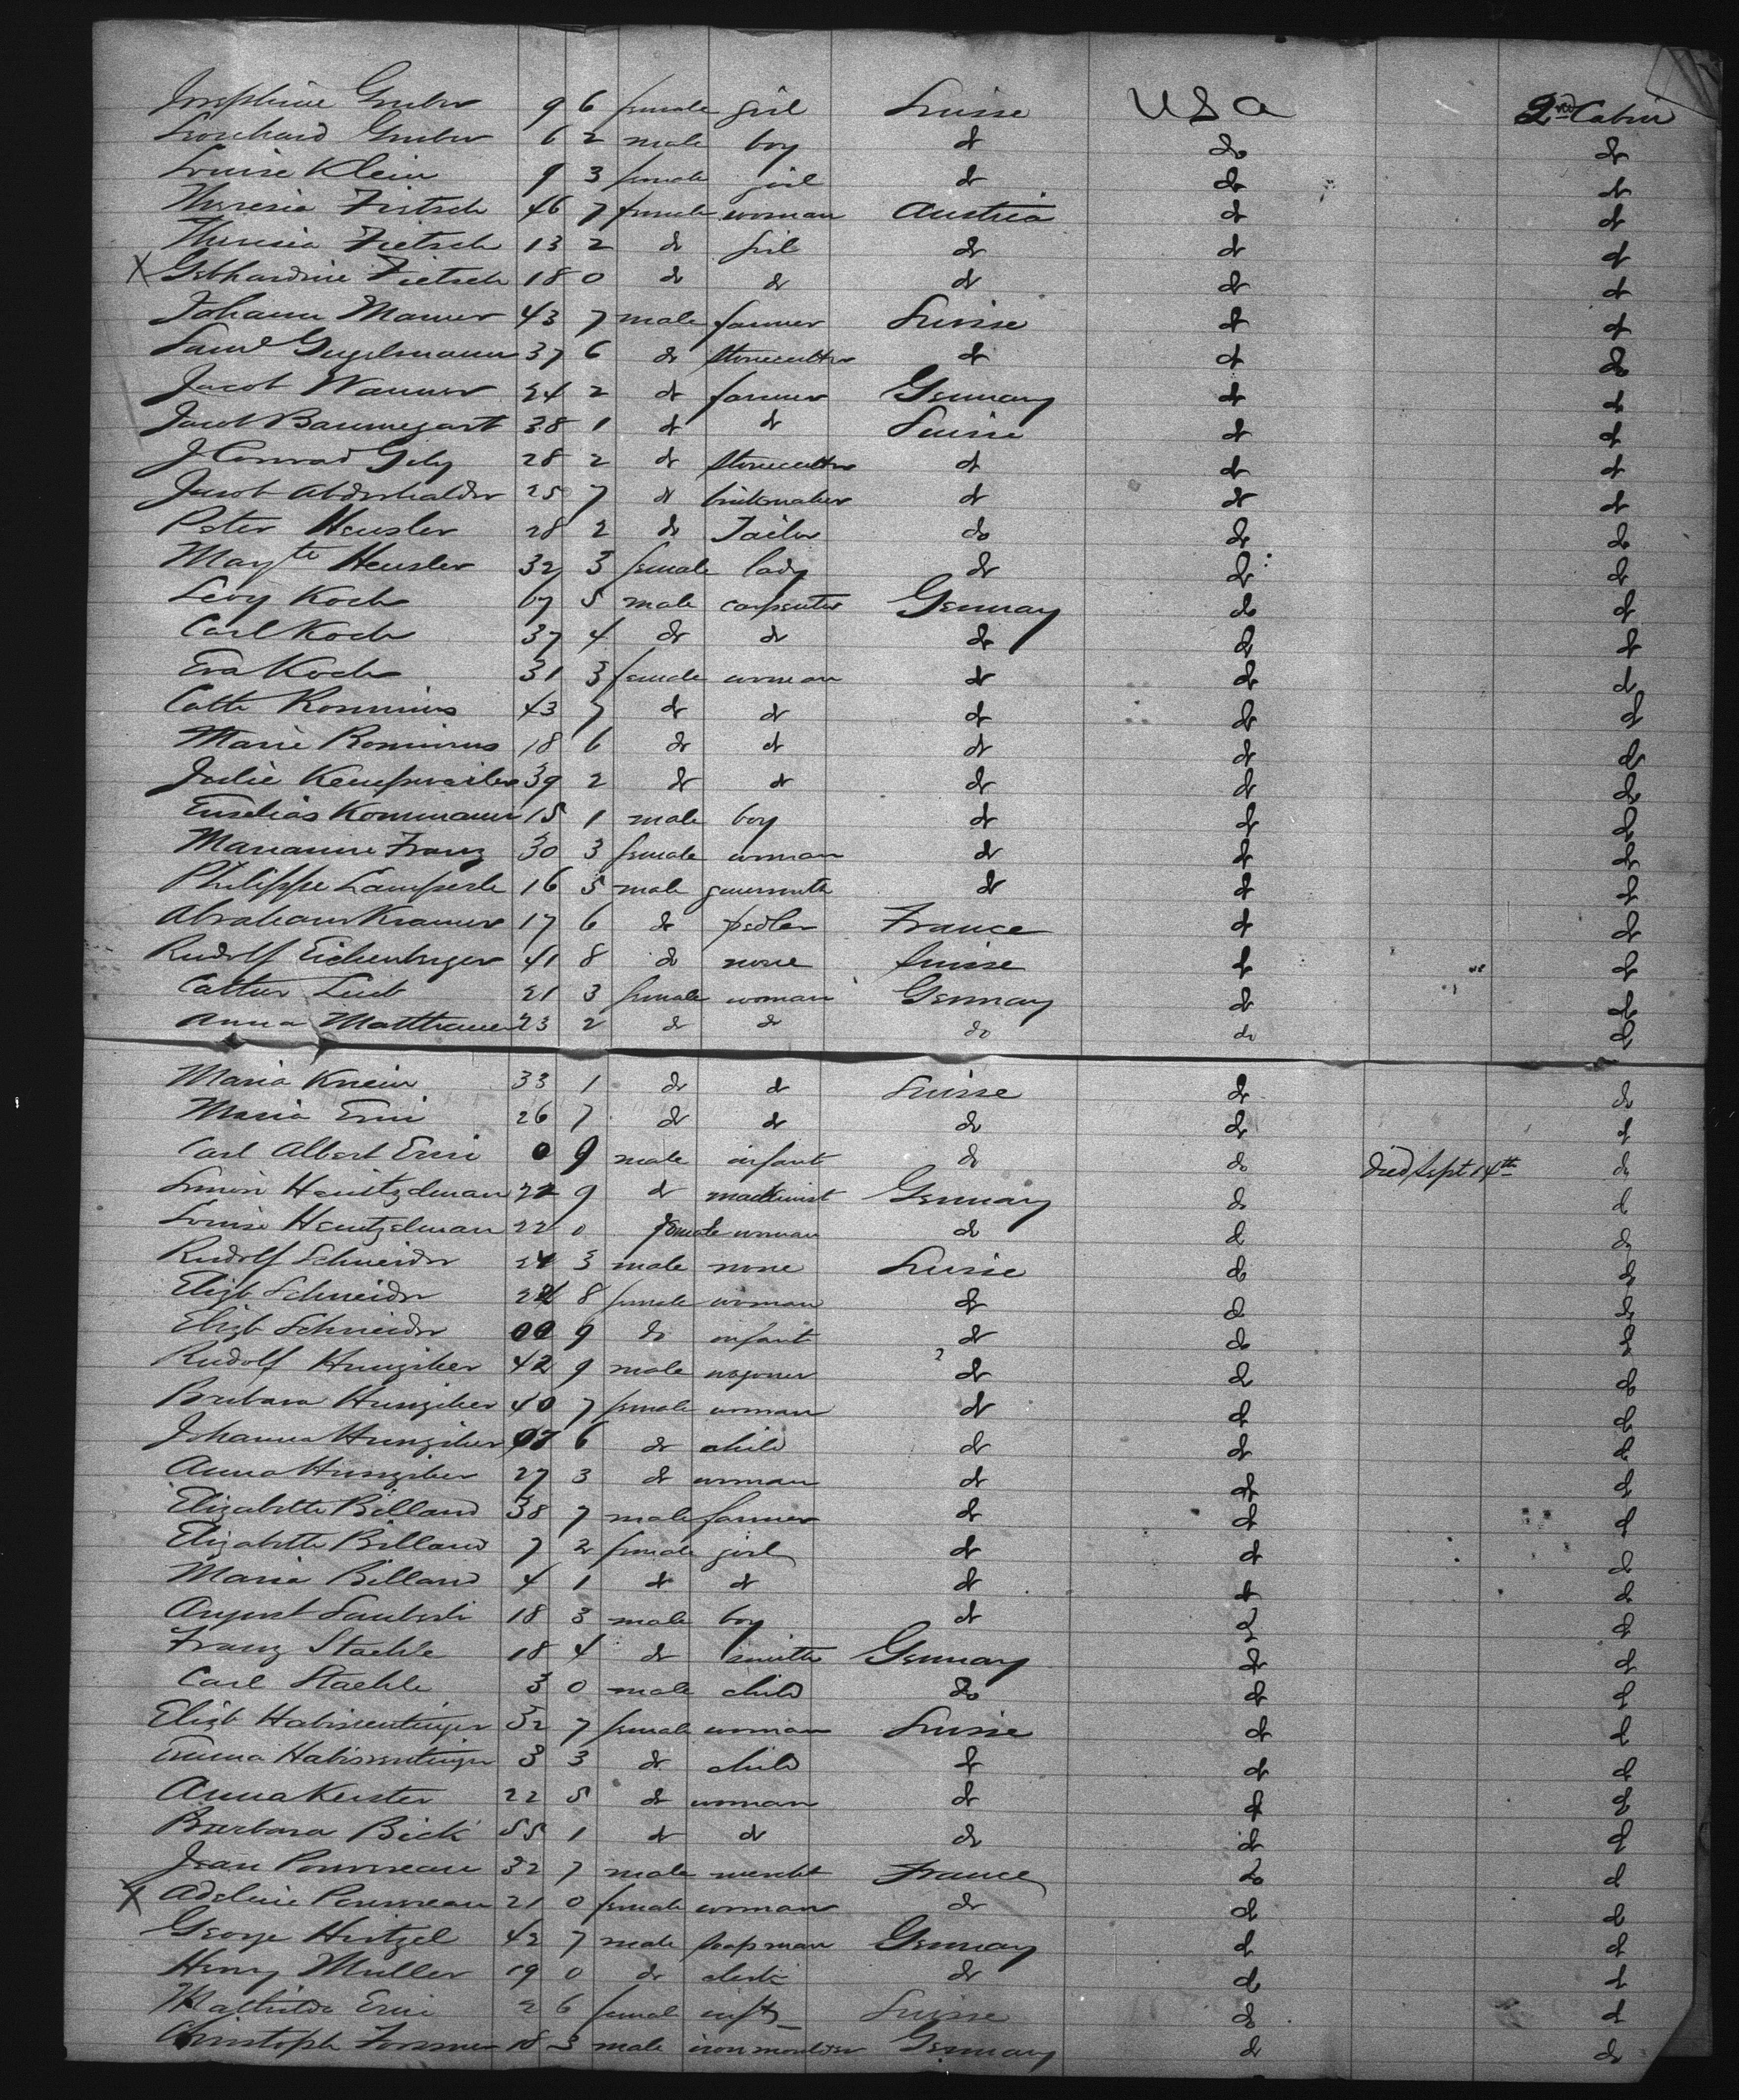 Josephine Gruber 9 6 female girl Suisse USA 2nd Cabin
Leonhard Gruber 6 2 male boy do do do
Louise Klein 9 3 female girl do do do
Theresia Fritsch 46 7 female woman Austria do do
Theresia Fietsch 13 2 do girl do do do
X Gebhardine Fietsch 18 0 do do do do do
Johann Maurer 43 7 male farmer Suisse do do
Saml Gugelmann 37 6 do stonecutter do do do
Jacob Wanner 24 2 do farmer Germany do do
Jacob Baumgart 38 1 do do Suisse do do
J Conrad Gily 28 2 do stonecutter do do do
Jacob Abderhalder 25 7 do brickmaker do do do
Peter Heusler 28 2 do Tailor do do do
Mayte Heusler 32 3 female lady do do do
Levy Koch 67 5 male carpenter Germany do do
Carl Koch 37 4 do do do do do
Eva Koch 31 3 female woman do do do
Cath Romminus 43 7 do do do do do
Marie Rominus 18 6 do do do do do
Julie Kempwailer 39 2 do do do do do
Kommauer 15 1 male boy do do do
Marianne Franz 30 3 female woman do do do
Philippe Lamperle 16 5 male do do do
Abraham Kramer 17 6 do pedler France do do
Rudolf Eichenberger 41 8 do none Suisse do do
Cather Leub 21 3 female woman Germany do do
Anna Matthauer 23 2 do do do do do
Maria Knein 33 1 do do Suisse do do
Maria Erni 26 7 do do do do do
Carl Albert Erni 0 9 male infant do do died Sept 14th do
Simon Heintzelman 22 9 do machinist Germany do do
Louise Heintzelman 22 0 female woman do do do
Rudolf Schneider 24 3 male none Suisse do do
Elisb Schneider 22 8 female woman do do do
Elisb Schneider 00 9 do infant do do do
Rudolf Hunziker 42 9 male wagoner do do do
Barbara Hunziker 40 7 female woman do do do
Johanna Hunziker 07 6 do child do do do
Anna Hunziker 27 3 do woman do do do
Elizabethe Billand 38 7 male farmer do do do
Elizabethe Billand 7 2 female girl do do do
Maria Billand 4 1 do do do do do
August Lauberli 18 3 male boy do do do
Franz Staehle 18 4 do smith Germany do do
Carl Staehle 3 0 male child do do do
Elisb Habisreutinger 32 7 female woman Suisse do do
Emma Habisreutinger 3 3 do child do do do
Anna Kerster 22 5 do woman do do do
Barbara Bick 55 1 do do do do do
Jean Pouvreau 32 7 male mercht France do do
X Adeline Pouvreau 21 0 female woman do do do
George Hirtzel 42 7 male soapman Germany do do
Henry Muller 19 0 do clerk do do do
Mathilda Erni 2 6 female inft Suisse do do
Christoph Forsner 18 3 male iron moulder Germany do do